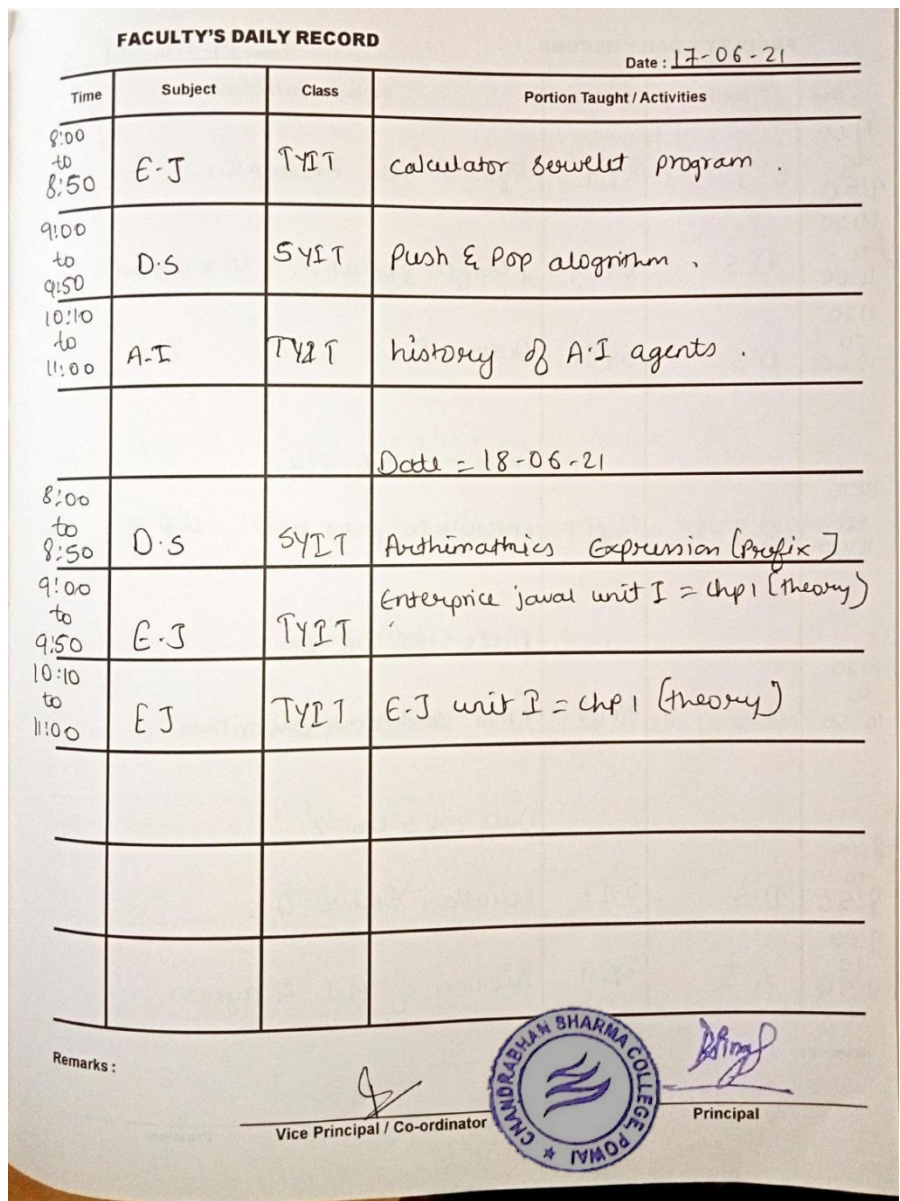 FACULTY'S DAILY RECORD
Date : 17-06-21
Time Subject Class Portion Taught / Activities
8:00
to
8:50 E-J TYIT calculator servelet program .
9:00
to
9:50 D.S SYIT Push & Pop alogrithm .
10:10
to
11:00 A-I TYIT history of A.I agents .
Date = 18-06-21
8:00
to
8:50 D.S SYIT Arthimathics Expression [Prefix]
9:00
to
9:50 E-J TYIT Enterprice javal unit I = chp1 (theory)
10:10
to
11:00 EJ TYIT E-J unit I = chp 1 (theory)
Remarks :
Vice Principal / Co-ordinator
CHANDRABHAN SHARMA COLLEGE, POWAI
Principal